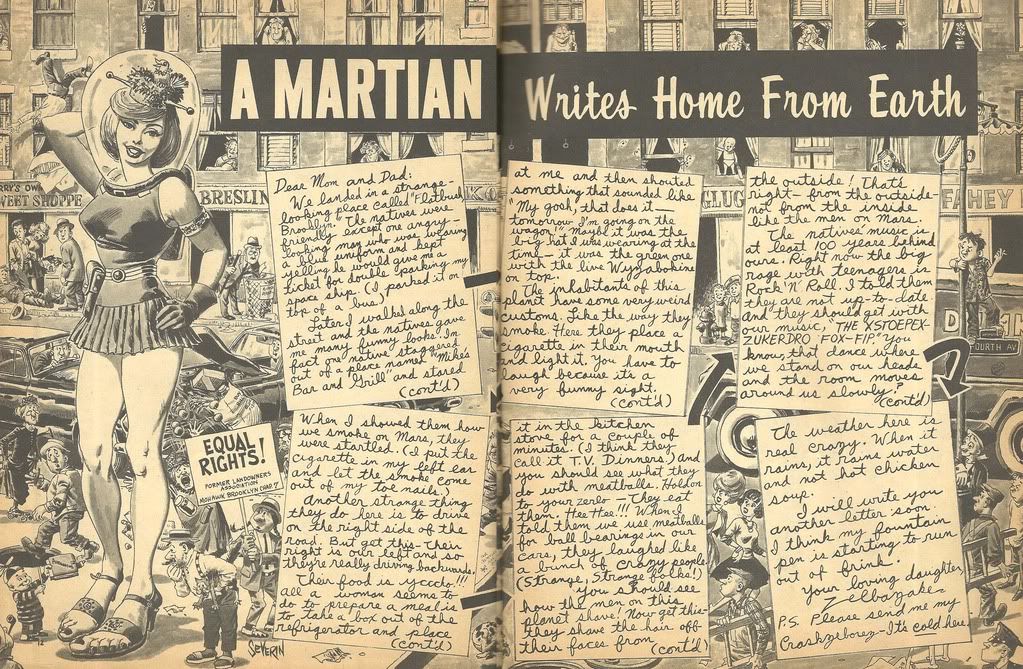 A MARTIAN Writes Home From Earth
Dear Mom and Dad:
We landed in a strange-
looking place called "Flatbush
Brooklin. The natives were
friendly except one angry-
looking man who was wearing
a blue uniform and kept
yelling he would give me a
ticket for double parking my
space ship. (I parked it on
top of a bus)
Later I walked along the
street and the natives gave
me many funny looks. Im
fact one native staggered
out of a place named "Mike's
Bar and Grill" and stared
(cont'd)
at me and then shouted
something that sounded like
"My gosh, that does it—
tomorrow I'm going on the
wagon!" Maybe it was the
big hat I was wearing at the
time— it was the green one
with the live Wyzabokine
on top.
The inhabitants of this
planet have some very weird
customs. Like the way they
smoke. Here they place a
cigarette in their mouth
and light it. You have to
laugh because it's a
very funny sight.
(cont'd)
When I showed them how
we smoke on Mars, they
were startled. (I put the
cigarette in my left ear
and let the smoke come
out of my toe nails.)
Another strange thing
they do here is to drive
on the right side of the
road. But get this-their
right is our left and so
they're really driving backwards.
Their food is yccch!!!
all a woman seems to
do to prepare a meal is
to take a box out of the
refrigerator and place
(cont'd)
it in the kitchen
stove for a couple of
minutes. (I think they
call it T.V. Dinners.) and
you should see what they
do with meatballs. Hold on
to your zerlo — They eat
them. Hee Hee!!! When I
told them we use meatballs
for ball bearings in our
cars, they laughed like
a bunch of crazy people.
(Strange, Strange folks!)
You should see
how the men on this
planet shave! Now get this-
they shave the hair off
their faces from (cont'd)
the outside! That's
right-from the outside-
not from the inside
like the men on Mars.
The natives' music is
at least 100 years behind
ours. Right now the big
rage with teenagers is
Rock 'N' Roll. I told them
they are not up-to-date
and they should get with
our music, "THE XSTOEPEX-
ZUKERDRO FOX-FIP" You
know, that dance where
we stand on our heads
and the room moves
around us slowly?
(cont'd)
The weather here is
real crazy. When it
rains, it rains water
and not hot chicken
soup.
I will write you
another letter soon.
I think my fountain
pen is starting to run
out of frink.
Your loving daughter,
Zelbazake
P.S. Please send me my
Crashziborez-It's cold here.
RRY'S OWN
WEET SHOPPE
BRESLIN
KO
GLUG
FAHEY
FOURTH AV
EQUAL
RIGHTS!
FORMER LANDOWNERS
ASSOCIATION
MOHAWK BROOKLYN CHAP 7
SEVERIN
12